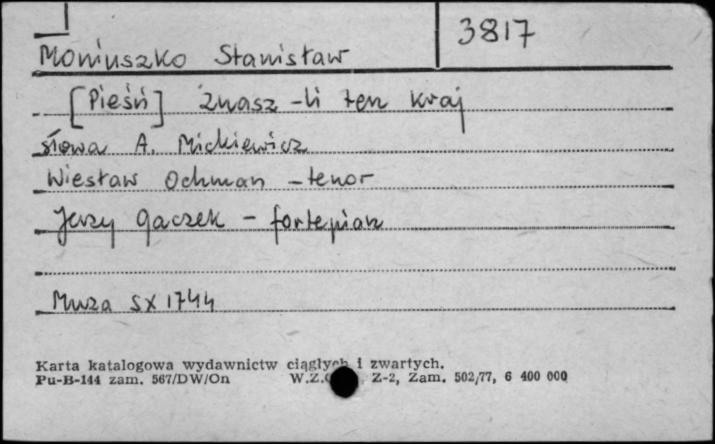 3817
Moniuszko Stanisław
[Pieśń] Znasz-li ten kraj
słowa A. Mickiewicz
Wiesław Ochman - tenor
Jerzy Gaczek - fortepian
Muza SX 1744
Karta katalogowa wydawnictw ciągłych i zwartych.
Pu-B-144 zam. 567/DW/On W.Z. Z-2, Zam. 502/77, 6 400 000